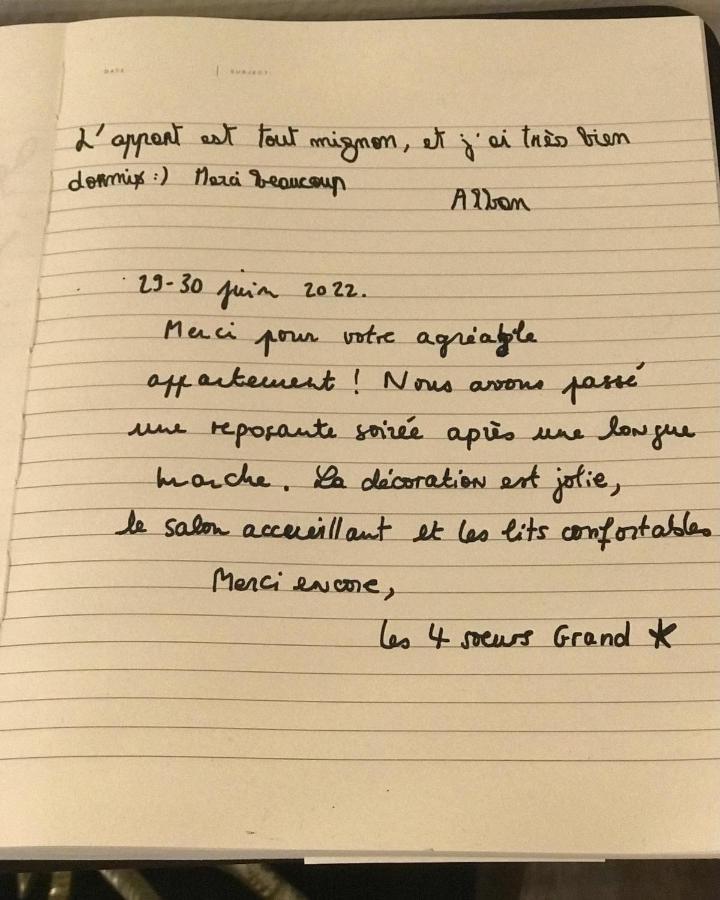 DATE | SUBJECT:
L'appart est tout mignon, et j'ai très bien
dormis :) Merci beaucoup
Alban
29-30 juin 2022.
Merci pour votre agréable
appartement ! Nous avons passé
une reposante soirée après une longue
marche. La décoration est jolie,
le salon accueillant et les lits confortables
Merci encore,
les 4 soeurs Grand ★